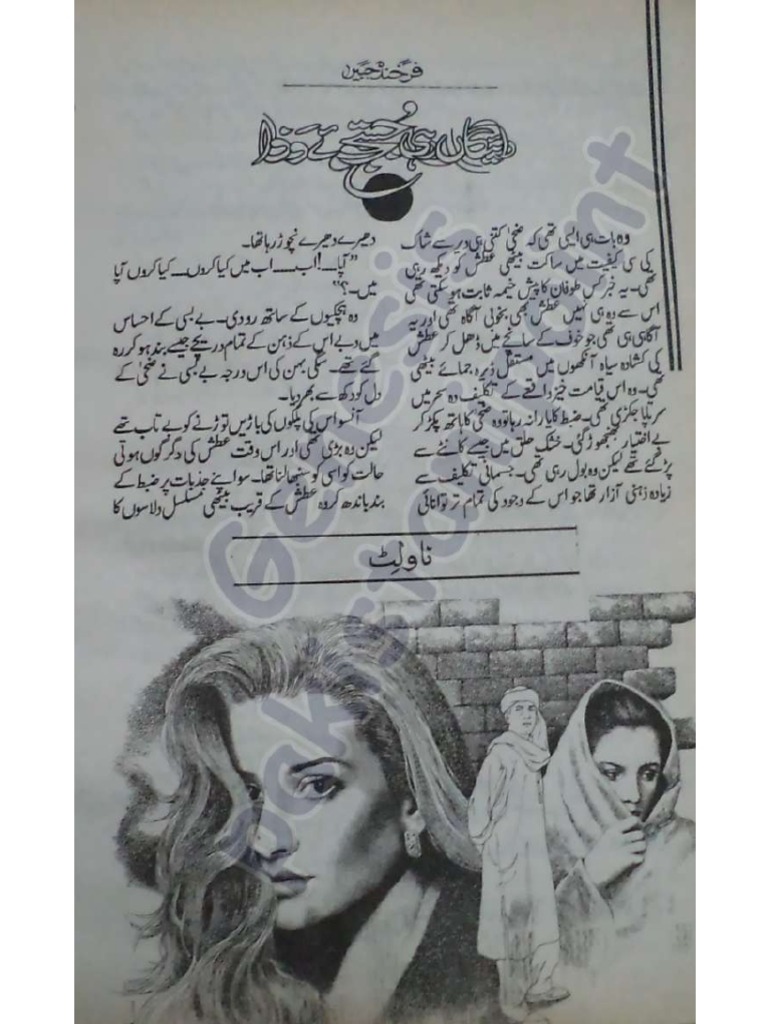 فرخندہ جبیں
رائیگاں ہی جستجوئے وفا
وہ بات ہی ایسی تھی کہ ضحیٰ کتنی ہی دیر سے شاک
کی سی کیفیت میں ساکت بیٹھی عطش کو دیکھ رہی
تھی۔ یہ خبر کس طوفان کا پیش خیمہ ثابت ہو سکتی تھی
اس سے وہ ہی نہیں عطش بھی بخوبی آگاہ تھی اور یہ
آگاہی ہی تھی جو خوف کے سانچے میں ڈھل کر عطش
کی کشادہ سیاہ آنکھوں میں مستقل ڈیرہ جمائے بیٹھی
تھی۔ وہ اس قیامت خیز واقعے کے تکلیف دہ سحر میں
سر تاپا جکڑی تھی۔ ضبط کا یارا نہ رہا تو وہ ضحیٰ کا ہاتھ پکڑ کر
بے اختیار جھنجھوڑ گئی۔ خشک حلق میں جیسے کانٹے سے
پڑ گئے تھے لیکن وہ بول رہی تھی۔ جسمانی تکلیف سے
زیادہ ذہنی آزار تھا جو اس کے وجود کی تمام تر توانائی
دھیرے دھیرے نچوڑ رہا تھا۔
"آپا۔۔۔! اب۔۔۔ اب میں کیا کروں۔۔۔ کیا کروں آپا
میں۔۔؟"
وہ ہچکیوں کے ساتھ رو دی۔ بے بسی کے احساس
میں دبے اس کے ذہن کے تمام دریچے جیسے بند ہو کر رہ
گئے تھے۔ سگی بہن کی اس درجہ بے بسی نے ضحیٰ کے
دل کو دکھ سے بھر دیا۔
آنسو اس کی پلکوں کی باڑیں توڑنے کو بے تاب تھے
لیکن وہ بڑی تھی اور اس وقت عطش کی دگرگوں ہوتی
حالت کو اسی کو سنبھالنا تھا۔ سو اپنے جذبات پر ضبط کے
بند باندھ کر وہ عطش کے قریب بیٹھی مسلسل دلاسوں کا
ناولٹ
Genesis
pakistanipoint